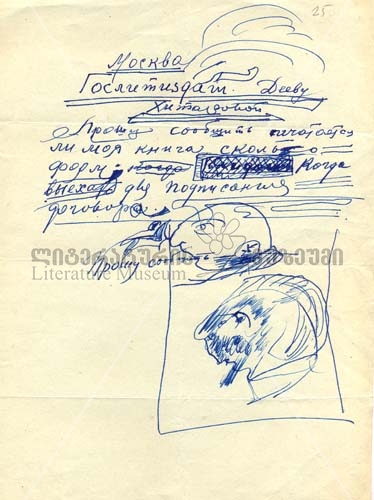 25.
Москва
Гослитиздат. Дееву
Хитаровой
Прошу сообщить печатается
ли моя книга сколько
форм. когда Когда
выехать для подписания
договора
ლიტერატურის მუზეუმი
Literature Museum
Прошу сообщ